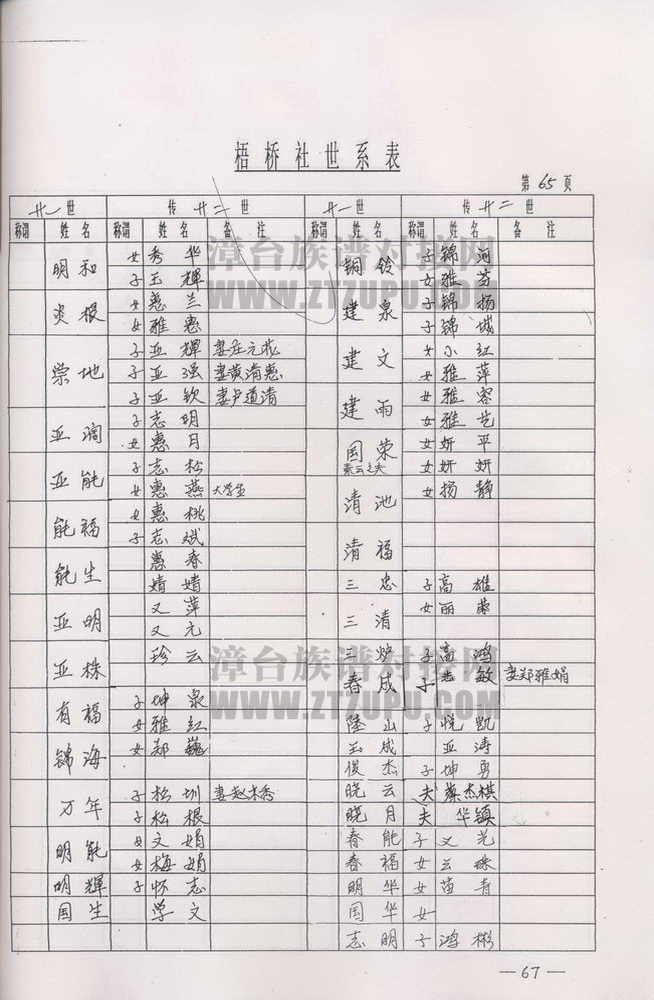 梧桥社世系表
第65页
廿一世 传廿二世 廿一世 传廿二世
称谓 姓名 称谓 姓名 备注 称谓 姓名 称谓 姓名 备注
明和 女 秀华 铜铃 子 锦河
子 玉辉 女 雅芬
炎根 女 惠兰 建泉 子 锦扬
女 雅惠 子 锦城
崇地 子 亚辉 妻庄元花 建文 女 小红
子 亚强 妻黄清惠 女 雅萍
子 亚钦 妻卢道清 建雨 女 雅容
亚润 子 志明 女 雅艺
女 惠月 国荣 女 妍平
亚能 子 志松 素云之夫 女 妍妍
女 惠燕 大学生 清池 女 扬静
能福 女 惠桃
子 志斌 清福
能生 惠春
婧婧 三忠 子 高雄
亚明 又萍 三清 女 丽蓉
又元
亚株 珍云 三炉 子 高鸿
春成 子 志敏 妻郑雅娟
有福 子 坤泉
女 雅红 陆山 子 悦凯
锦海 女 郑巍 玉成 亚涛
俊杰 子 坤勇
万年 子 松圳 妻赵木秀 晓云 夫 蔡杰棋
子 松根 晓月 夫 华镇
明能 女 文娟 春能 子 义艺
女 梅娟 春福 女 云珠
明辉 子 怀志 明华 女 苗青
国生 学文 国华 女
志明 子 鸿彬
—67—
漳台族谱对接网
WWW.ZTZUPU.COM
漳台族谱对接网
WWW.ZTZUPU.COM